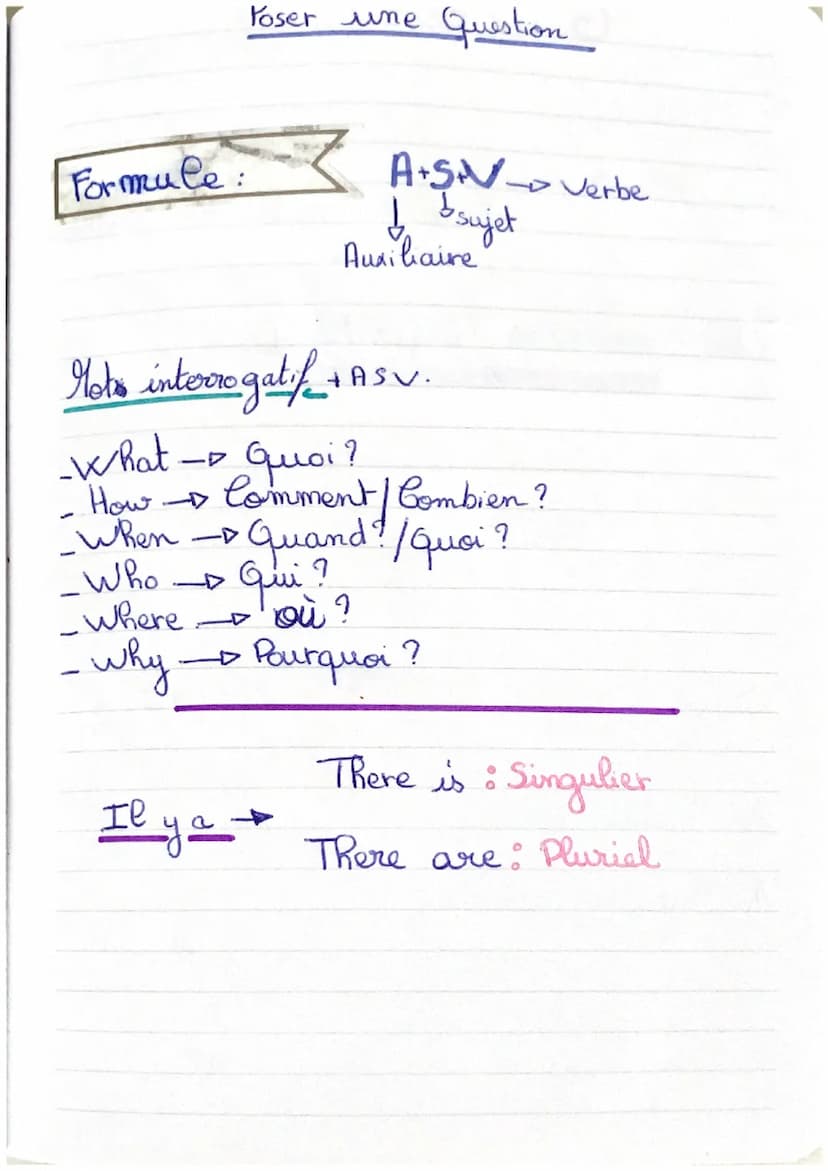 Poser une Question
Formule : A+S+V → Verbe
↓ sujet
Auxiliaire
Mots interrogatif + ASV.
- What → Quoi ?
- How → Comment / Combien ?
- When → Quand ? / Quoi ?
- Who → Qui ?
- Where → où ?
- Why → Pourquoi ?
There is : Singulier
Il y a →
There are : Pluriel